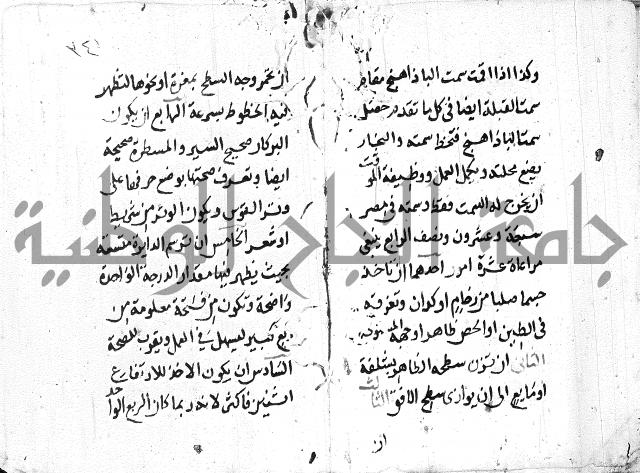 وكذا اذا اقمت سمت الباذاهنج مقام
سمت القبلة ايضا في كل ما تقدم حصل
سمت الباذاهنج فتخط سمته والنجار
يضع محلته وبكمل العمل ووظيفة الموقت
ان يخرج له السمت فقط وسمته في مصر
سبعة وعشرون ونصف الرابع ينبغي
مراعاة عشرة امور احدها ان تاخذ
جسما صلبا من رخام او كدان وتعرفه
في الطين او الجص ظاهر اوجهه
الثاني ان يكون سطحه الظاهر
او مايع الى ان يوازي سطح الافق الثالث
ان
٣٤١
ان تحمر وجه السطح بمغرة او نحوها لتظهر
فيه الخطوط بسرعة الرابع ان يكون
البركار صحيح السير والمسطرة صحيحة
ايضا وتعرف صحتها بوضع حرفها على
وتر القوس ويكون الوتر من خيط
او شعر الخامس ان ترسم الدايرة مقسمة
بحيث يظهر فيها مقدار الدرجة الواحدة
واضحة وتكون من فتحة معلومة من
ربع كبير ليسهل في العمل ويقرب للصحة
السادس ان يكون الاخذ للارتفاع
اثنين فاكثر لانه ربما كان الربع الواحد
جامعة النجاح الوطنية